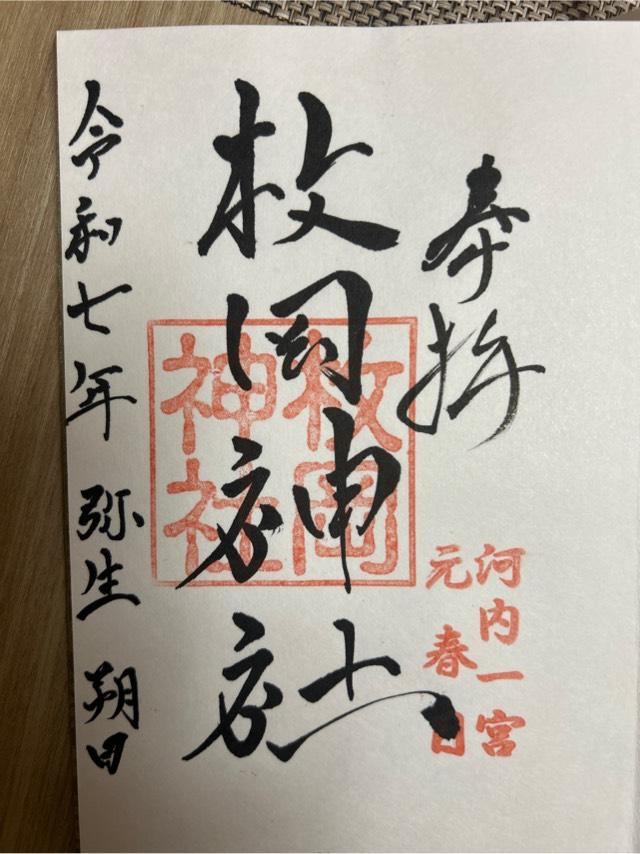 奉拝
河内一宮
元春日
枚岡神社
枚岡
神社
令和七年 弥生 朔日